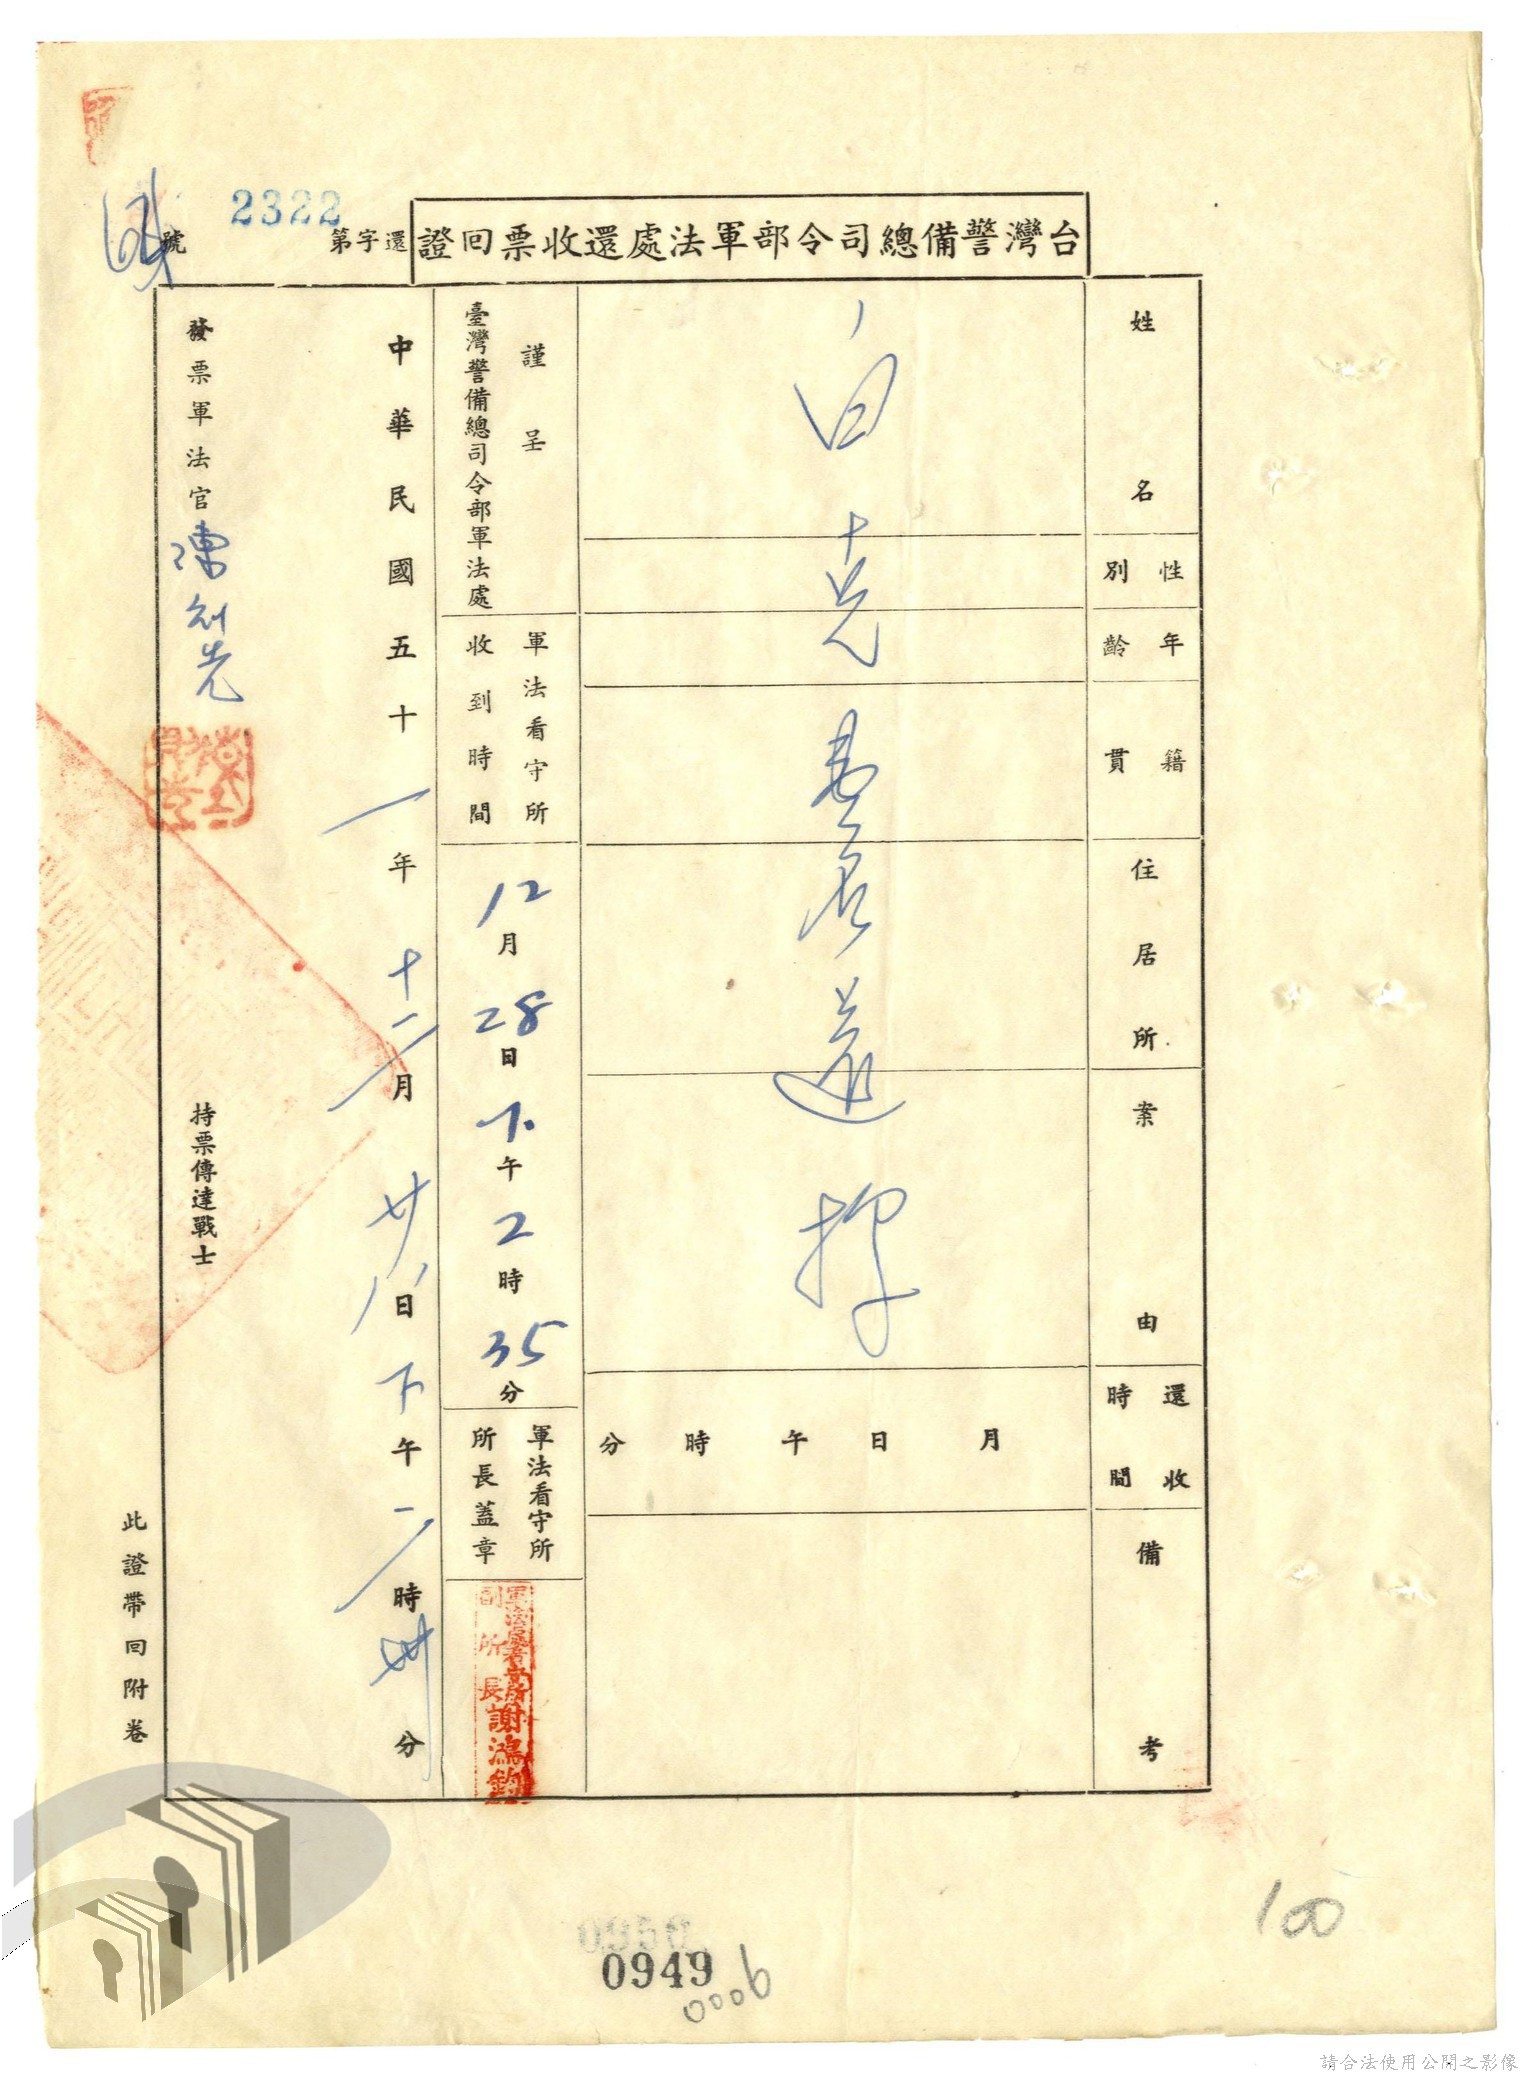 台灣警備總司令部軍法處還收票回證
還字第 2322 號
姓名
性別
年齡
籍貫
住居所
案由
還收時間
備考
白克
還押
月 日 午 時 分
謹呈
臺灣警備總司令部軍法處
軍法看守所
收到時間
12月28日下午2時35分
軍法看守所
所長蓋章
軍法處看守所
副所長謝鴻鈞
中華民國五十一年十二月廿八日下午二時卅分
發票軍法官
持票傳達戰士
此證帶回附卷
100
0949
0006
請合法使用公開之影像